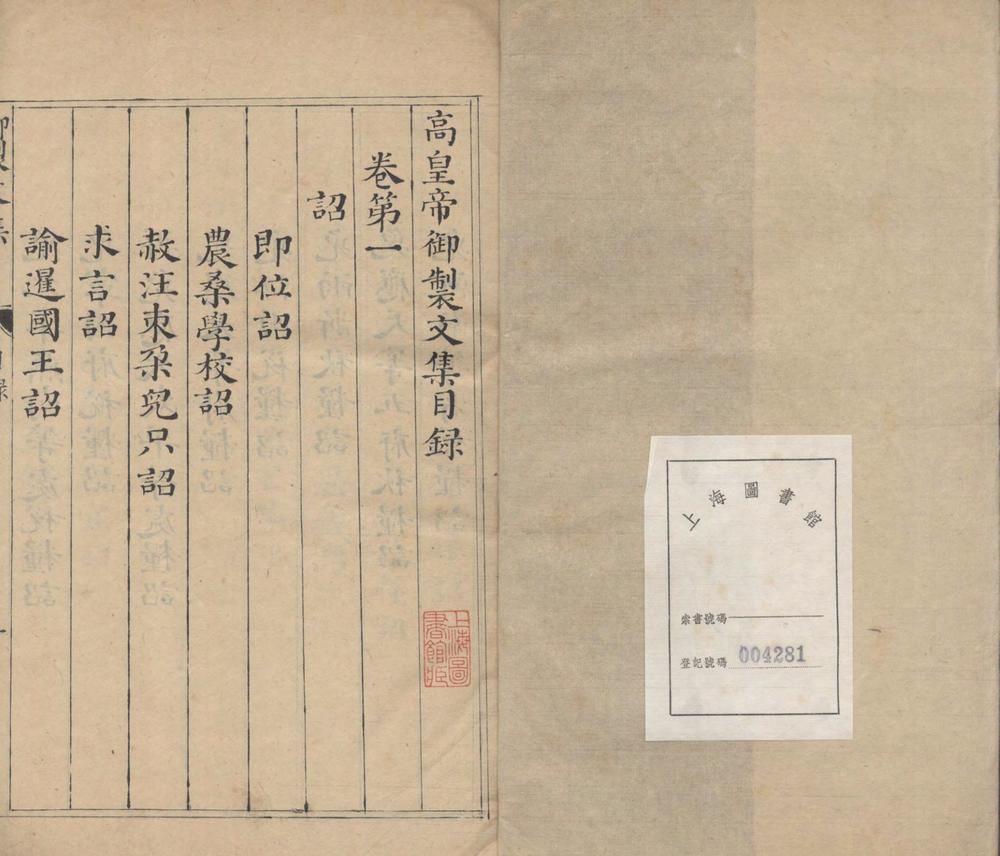 上海圖書館
索書號碼
登記號碼 004281
高皇帝御製文集目録
卷第一
詔
即位詔
農桑學校詔
赦汪朿朶兒只詔
求言詔
諭暹國王詔
上海圖書館